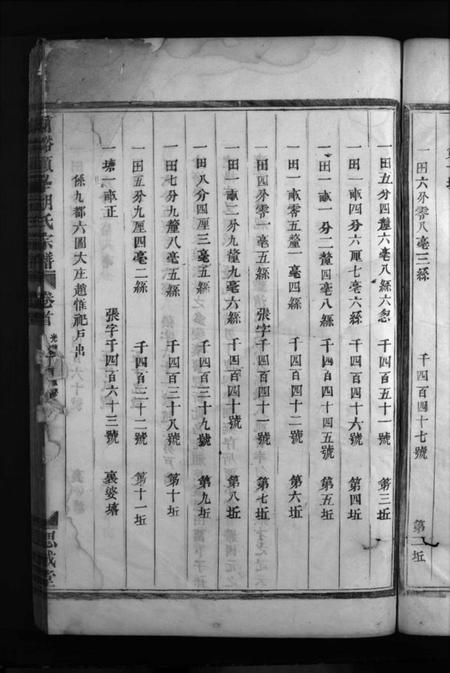 一田六分零八毫三絲 千四百四十七號 第二坵
一田五分四釐六毫八絲六忽 千四百五十一號 第三坵
一田一畝四分六厘七毫六絲 千四百四十六號 第四坵
一田一畝一分二釐四毫八絲 千四百四十五號 第五坵
一田一畝零五釐一毫四絲 千四百四十二號 第六坵
一田四分零一毫五絲 張字千四百四十一號 第七坵
一田一畝二分九釐九毫六絲 千四百四十號 第八坵
一田八分四厘三毫五絲 千四百三十九號 第九坵
一田七分九釐八毫五絲 千四百三十八號 第十坵
一田五分九厘四毫二絲 千四百三十二號 第十一坵
一塘一畝正 張字千四百六十三號 裏婆塘
係九都六圖大庄趙惟祀戶出
胡氏宗譜 卷首
思誠堂